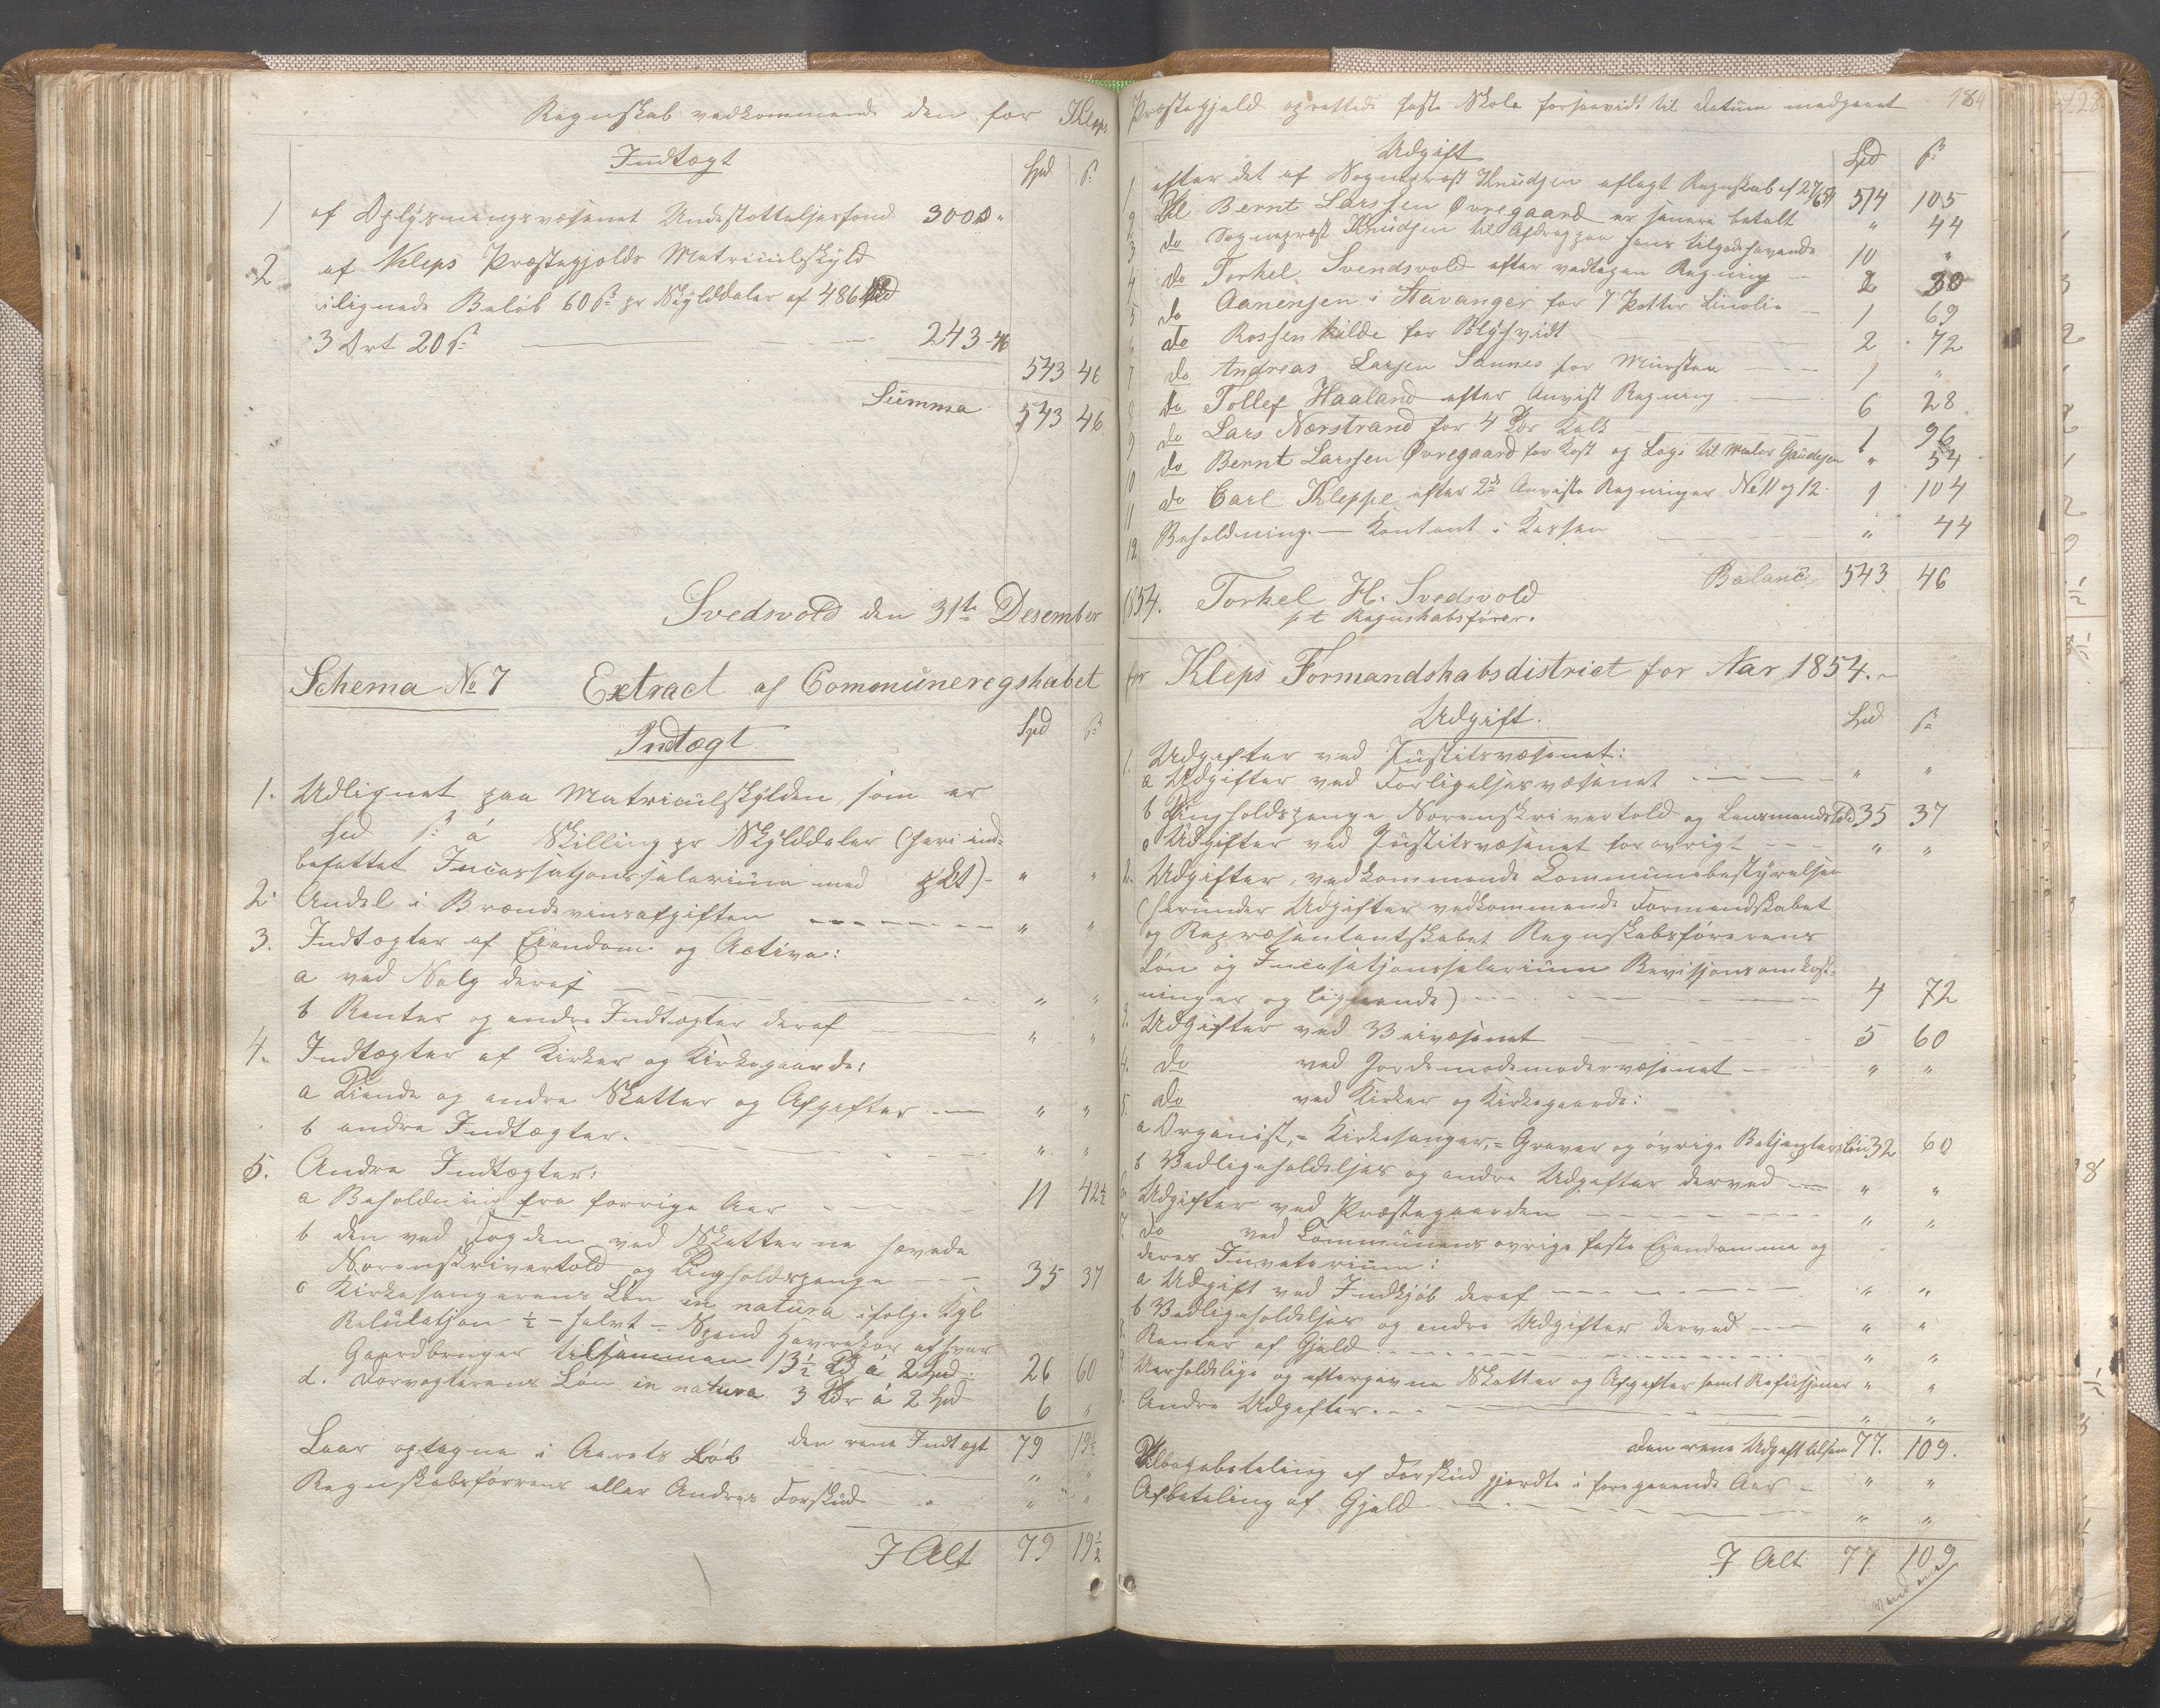 Regnskab vedkommende den for Kleps
Indtægt
Spd ß
1 af Oplysningsvæsenet Understøttelsesfond 300 "
2 af Kleps Præstegjelds Matriculskyld
ilignede Beløb 60 ß pr Skylddaler af 486
3 Ort 20 ß 243-46
543 46
Summa 543 46
Svedsvold den 31te Desember
Schema No 7 Extract af Communeregskabet
Indtægt
Spd ß
1. Udlignet paa Matriculskylden, som er
spd ß á Skilling pr Skylddaler (heri ind-
befattet Incassationssalarium med pCt) - " "
2. Andel i Brændevinsafgiften " "
3. Indtægter af Eiendom og Activa:
a ved Salg deraf " "
b Renter og andre Indtægter deraf " "
4. Indtægter af Kirker og Kirkegaarde:
a Tiende og andre Skatter og Afgifter " "
b andre Indtægter. " "
5. Andre Indtægter:
a Beholdning fra forrige Aar 11 42½
b den ved Fogden ved Skatterne hævede
Sorenskrivertold og Tingholdspenge 35 37
c Kirkesangerens Løn in natura ifølge Kgl
Resulution ½ - halvt - Spand Havrekorn af hver
Gaardbruger tilsammen 13½ Td á 2 Spd 26 60
d. Dørvogterens Løn in natura 3 Tdr á 2 Spd 6 "
den rene Indtægt 79 19½
Laan optagne i Aarets Løb " "
Regnskabsførrens eller Andres Forskud " "
I Alt 79 19½
Præstegjeld oprettede faste Skole forsaavidt til datum medgaaet 184
Udgift
Spd ß
1 efter det af Sognepræst Knudsen aflagt Regnskab af 514 105
2 Til Bernt Larssen Øvregaard er senere betalt " 44
3 do Sognepræst Knudsen til Afdrag paa hans tilgodehavende 10 "
4 do Torkel Svendsvold efter vedtagen Regning 2 30
5 do Aanensen i Stavanger for 7 Potter Linolie 1 69
6 do Rossenkilde for Blyhvidt 2 72
7 do Andreas Larsen Sannes for Mursten 1 "
8 do Tollef Haaland efter Anvist Regning 6 28
9 do Lars Nærstrand for 4 Tdr Kalk 1 96
10 do Bernt Larssen Øvregaard for Kost og Logi til Maler Gaudesen " 54
11 do Carl Kleppe efter 2de Anviste Regninger No 11 og 12 1 104
12 Beholdning - Kontant i Kassen " 44
Balance 543 46
1854. Torkel H. Svedsvold
p t Regnskabsfører.
for Kleps Formandskabsdistrict for Aar 1854.
Udgift.
Spd ß
1. Udgifter ved Justitsvæsenet:
a Udgifter ved Forligelsesvæsenet " "
b Tingholdspenge Sorenskrivertold og Lensmandstold 35 37
c Udgifter ved Justitsvæsenet forøvrigt " "
2. Udgifter, vedkommende Communebestyrelsen
(herunder Udgifter vedkommende Formandskabet
og Repræsentantskabet Regnskabsførerens
Løn og Incasationssalarium Revisjonsomkost-
ninger og lignende) 4 72
3. Udgifter ved Veivæsenet 5 60
4. do ved Jordemodemodervæsenet " "
5. do ved Kirker og Kirkegaarde:
a Organist,- Kirkesanger,- Graver og øvrige Betjenters Løn 32 60
b Vedligeholdelses og andre Udgifter derved " "
6. Udgifter ved Præstegaarden " "
7. do ved Communens øvrige faste Eiendomme og
deres Inventarium:
a Udgift ved Indkjøb deraf " "
b Vedligeholdelses og andre Udgifter derved " "
8. Renter af Gjeld " "
9. Uerholdelige og eftergivne Skatter og Afgifter samt Refusjoner " "
Andre Udgifter. " "
Den rene Udgift tilsam 77. 109.
Tilbagebetaling af Forskud gjordte i foregaaende Aar " "
Afbetaling af Gjeld " "
I Alt 77 109